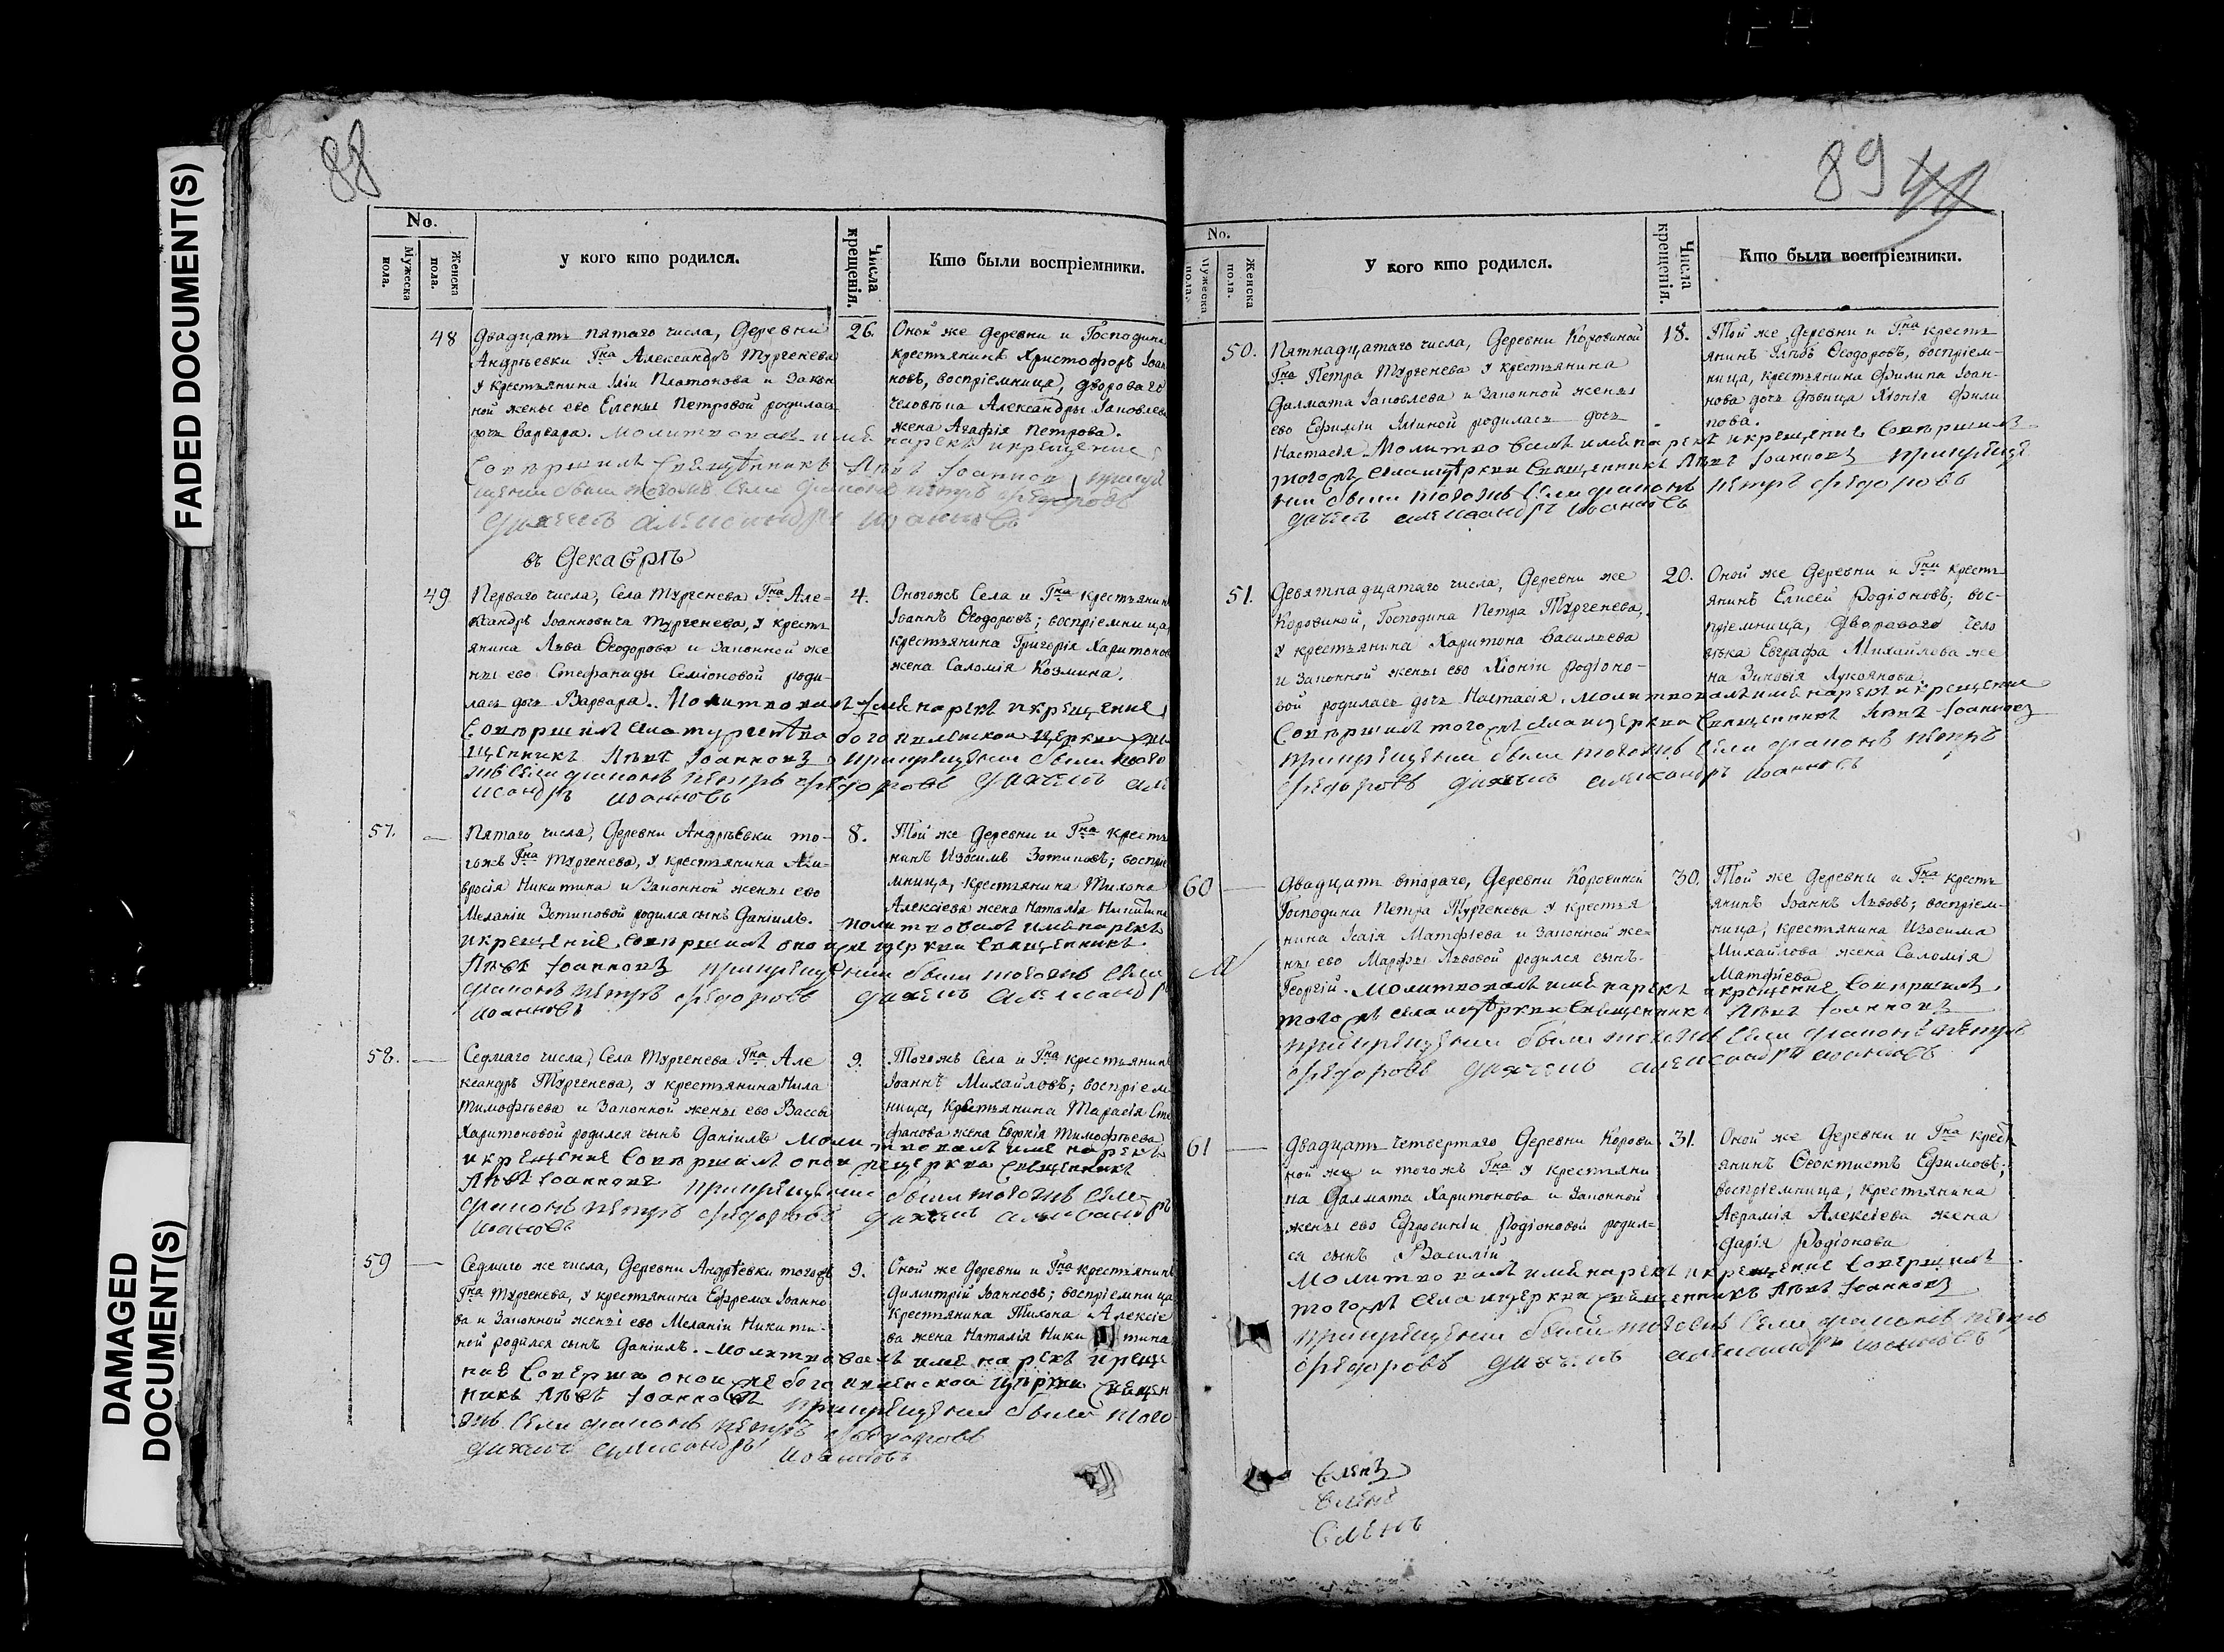 FADED DOCUMENT(S)
DAMAGED
DOCUMENT(S)
88
No.
Мужеска
пола.
Женска
пола.
у кого кто родился.
Числа
крещенія.
Кто были воспріемники.
48
Двадцать пятаго числа, Деревни
Андрѣевки Гна Александръ Тургенева
у крестьянина Иліи Платонова и Закон
ной жены ево Елены Петровой родилась
дочь Варвара. Молитвовалъ имѣ нарекъ икрещение
Совѣршилъ Свящѣнникъ Лѣвъ Іоанновъ
Дьячекъ Александръ Иоанновъ
26.
Оной же Деревни и Господина
крестьянинъ Христофоръ Іоан
новъ, воспріемница, двороваго
человѣка Александры Іаковлева
жена Агафія Петрова.
въ Декабрѣ
49
Перваго числа, Села Тургенева Гна Але-
ксандръ Іоанновича Тургенева, у кресть
янина Льва Ѳеодорова и Законной же
ны ево Стефаниды Семіоновой роди-
лась дочь Варвара. Молитвовалъ имѣ нарекъ икрещение
Совѣршилъ
щенникъ Лѣвъ Іоанновъ
4.
Оногожъ Села и Гна крестьянинъ
Іоаннъ Ѳеодоровъ; воспріемница,
крестьянина Григорія Харитонов
жена Саломія Козмина.
57.
Пятаго числа, Деревни Андрѣевки то-
гожъ Гна Тургенева, у крестьянина Ам-
вросія Никитина и Законной жены ево
Меланіи Зотиковой родился сынъ Даніилъ.
икрещение совершилъ оной же церкви священникъ
Лѣвъ Іоанновъ
8.
Той же Деревни и Гна кресть
нинъ Изосимъ Зотиковъ; воспріе
мница, крестьянина Тихона
Алексіева жена Наталія Никитина
молитвовалъ имѣ нарекъ
58.
Седмаго числа, Села Тургенева Гна Але
ксандръ Тургенева, у крестьянина Нила
Тимофѣева и Законной жены ево Вассы
Харитоновой родился сынъ Даніилъ
икрещение Совѣршилъ оной же церкви священникъ
Лѣвъ Іоанновъ
9.
Тогожъ Села и Гна крестьянинъ
Іоаннъ Михайловъ; воспріем
ница, крестьянина Тарасія Сте
фанова жена Евдокія Тимофѣева
59
Седмаго же числа, Деревни Андрѣевки тогожъ
Гна Тургенева, у крестьянина Ефрема Іоанно
ва и Законной жены ево Меланіи Никити-
ной родился сынъ Даніилъ. Молитвовалъ имѣ нарекъ
никъ Лѣвъ Іоанновъ
9.
Оной же Деревни и Гна крестьянинъ
Димитрій Іоанновъ; воспріемница
крестьянина Тихона Алексіе
ва жена Наталія Никитина
89
No.
Мужеска
пола.
Женска
пола.
У кого кто родился.
Числа
крещенія.
Кто были воспріемники.
50.
Пятнадцатаго числа, Деревни Коровиной
Гна Петра Тургенева у крестьянина
Далмата Іаковлева и Законной жены
ево Ефиміи Ильиной родилась дочь
Настасія Молитвовалъ имѣ нарекъ икрещение Совѣршилъ
тогожъ села церкви Священникъ Лѣвъ Іоанновъ
Дьячекъ Александръ Иоанновъ
18.
Той же Деревни и Гна кресть
янинъ Глѣбъ Ѳеодоровъ, воспріем-
ница, крестьянина Филипа Іоан-
нова дочь дѣвица Хіонія Фили
пова.
51.
Девятнадцатаго числа, Деревни же
Коровиной, Господина Петра Тургенева,
у крестьянина Харитона Васильева
и Законной жены ево Хіоніи Родіоно-
вой родилась дочь Настасія. Молитвовалъ имѣ нарекъ икрещение
Совѣршилъ тогожъ села церкви Священникъ Лѣвъ Іоанновъ
Фѣдоровъ Дьячекъ Александръ Иоанновъ
20.
Оной же Деревни и Гна кресть
янинъ Елисей Родіоновъ; вос-
пріемница, Двороваго чело
вѣка Евграфа Михайлова же
на Зиновія Лукоянова
60
Двадцать втораго, Деревни Коровиной
Господина Петра Тургенева у крестья
нина Исаія Матфіева и Законной же-
ны ево Марфы Львовой родился сынъ
Георгій. Молитвовалъ имѣ нарекъ икрещение Совѣршилъ
тогожъ села церкви Священникъ Лѣвъ Іоанновъ
Фѣдоровъ Дьячекъ Александръ Иоанновъ
30.
Той же Деревни и Гна кресть
янинъ Іоаннъ Львовъ; воспріем-
ница, крестьянина Изосима
Михайлова жена Саломія
Матфіева
61
Двадцать четвертаго Деревни Корови
ной же и тогожъ Гна у крестьяни
на Далмата Харитонова и Законной
жены ево Ефросиніи Родіоновой родил-
ся сынъ Василій
Молитвовалъ имѣ нарекъ икрещение Совершилъ
тогожъ села церкви священникъ Лѣвъ Іоанновъ
Фѣдоровъ Дьячекъ Александръ Иоанновъ
31.
Оной же Деревни и Гна крест
янинъ Ѳеоктистъ Ефимовъ;
воспріемница, крестьянина
Аврамія Алексіева жена
Дарія Родіонова